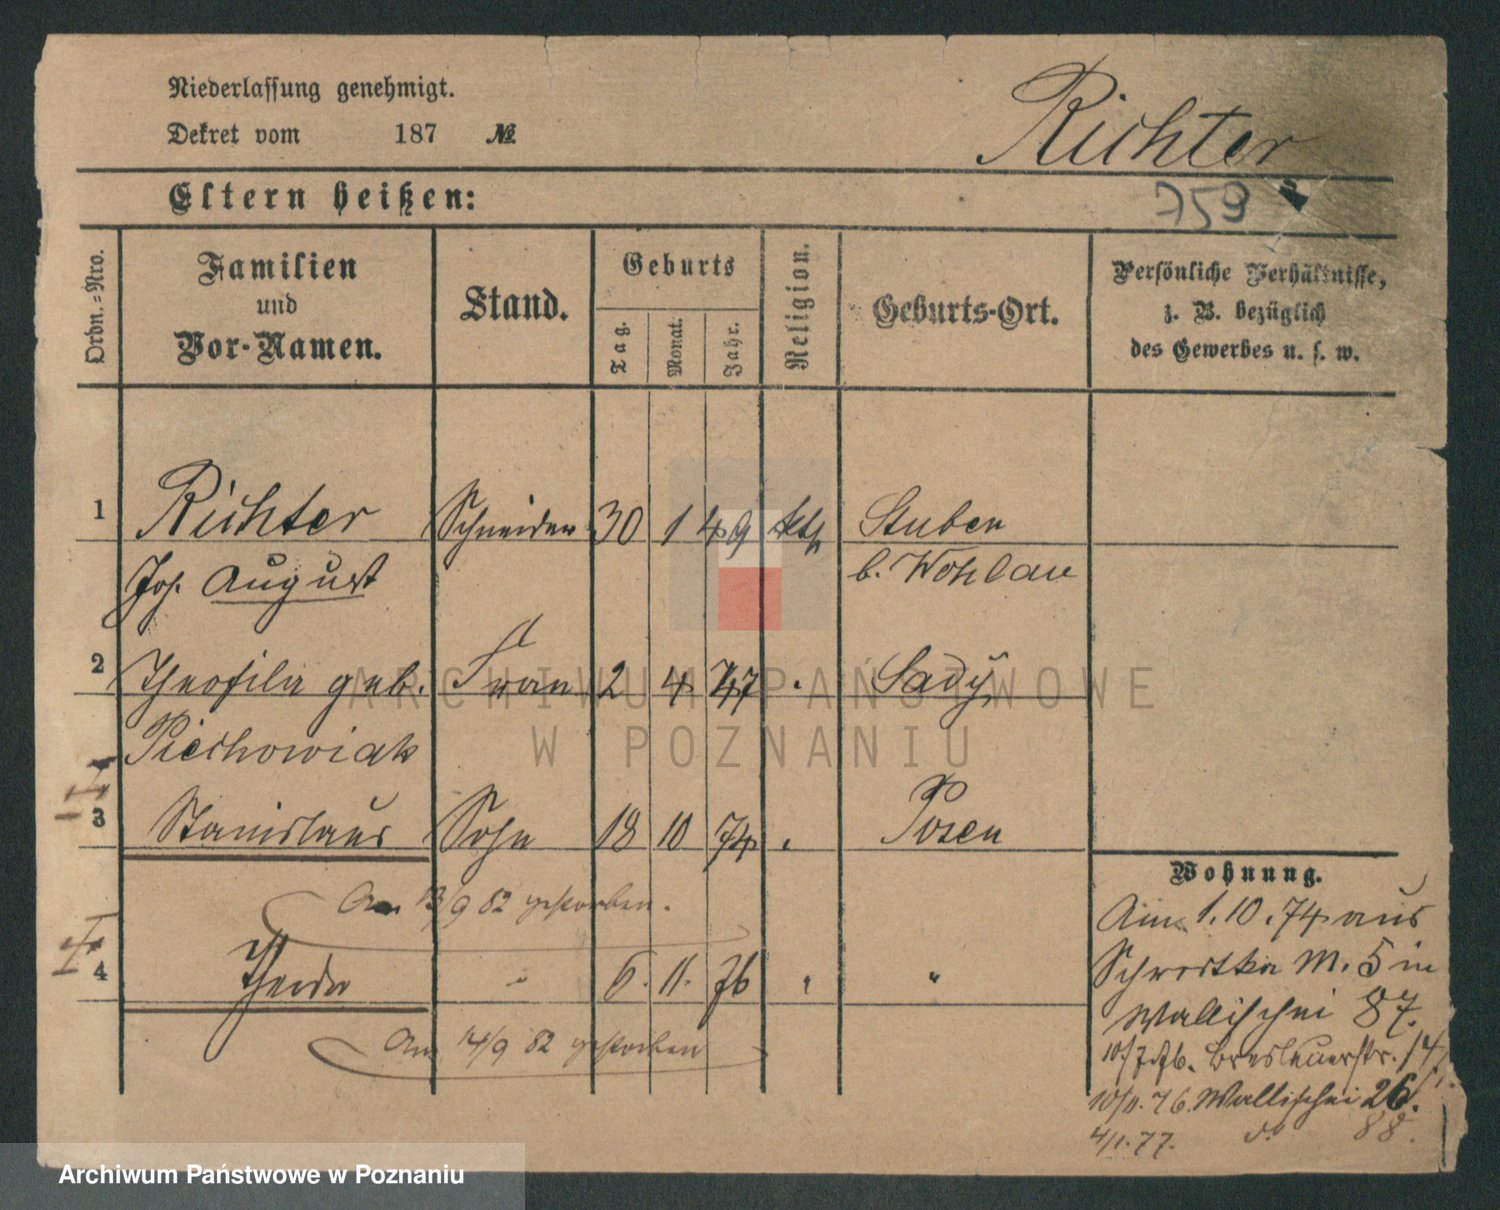 Niederlassung genehmigt.
Dekret vom 187 №
Richter
Eltern heißen:
759
Ordn.=Nro.
Familien
und
Vor-Namen.
Stand.
Geburts
Tag.
Monat.
Jahr.
Religion.
Geburts-Ort.
Persönliche Verhältnisse,
z. B. bezüglich
des Gewerbes u. s. w.
1 Richter Schneider 30 1 49 kth Stuben
Joh. August b. Wohlau
2 Theofila geb. Frau 2 4 47 Sady
Piechowiak
3 Stanislaus Sohn 18 10 74 Posen
Am 13/9 82 gestorben.
4 6. 11. 76 "
Am 14/9 82 gestorben
Wohnung.
Am 1.10.74 aus
M. 5 in
Wallischei 87.
10/7.76. Breslauerstr.
10/11.76. Wallischei 26.
4/1.77. do 88.
ARCHIWUM PAŃSTWOWE
W POZNANIU
Archiwum Państwowe w Poznaniu